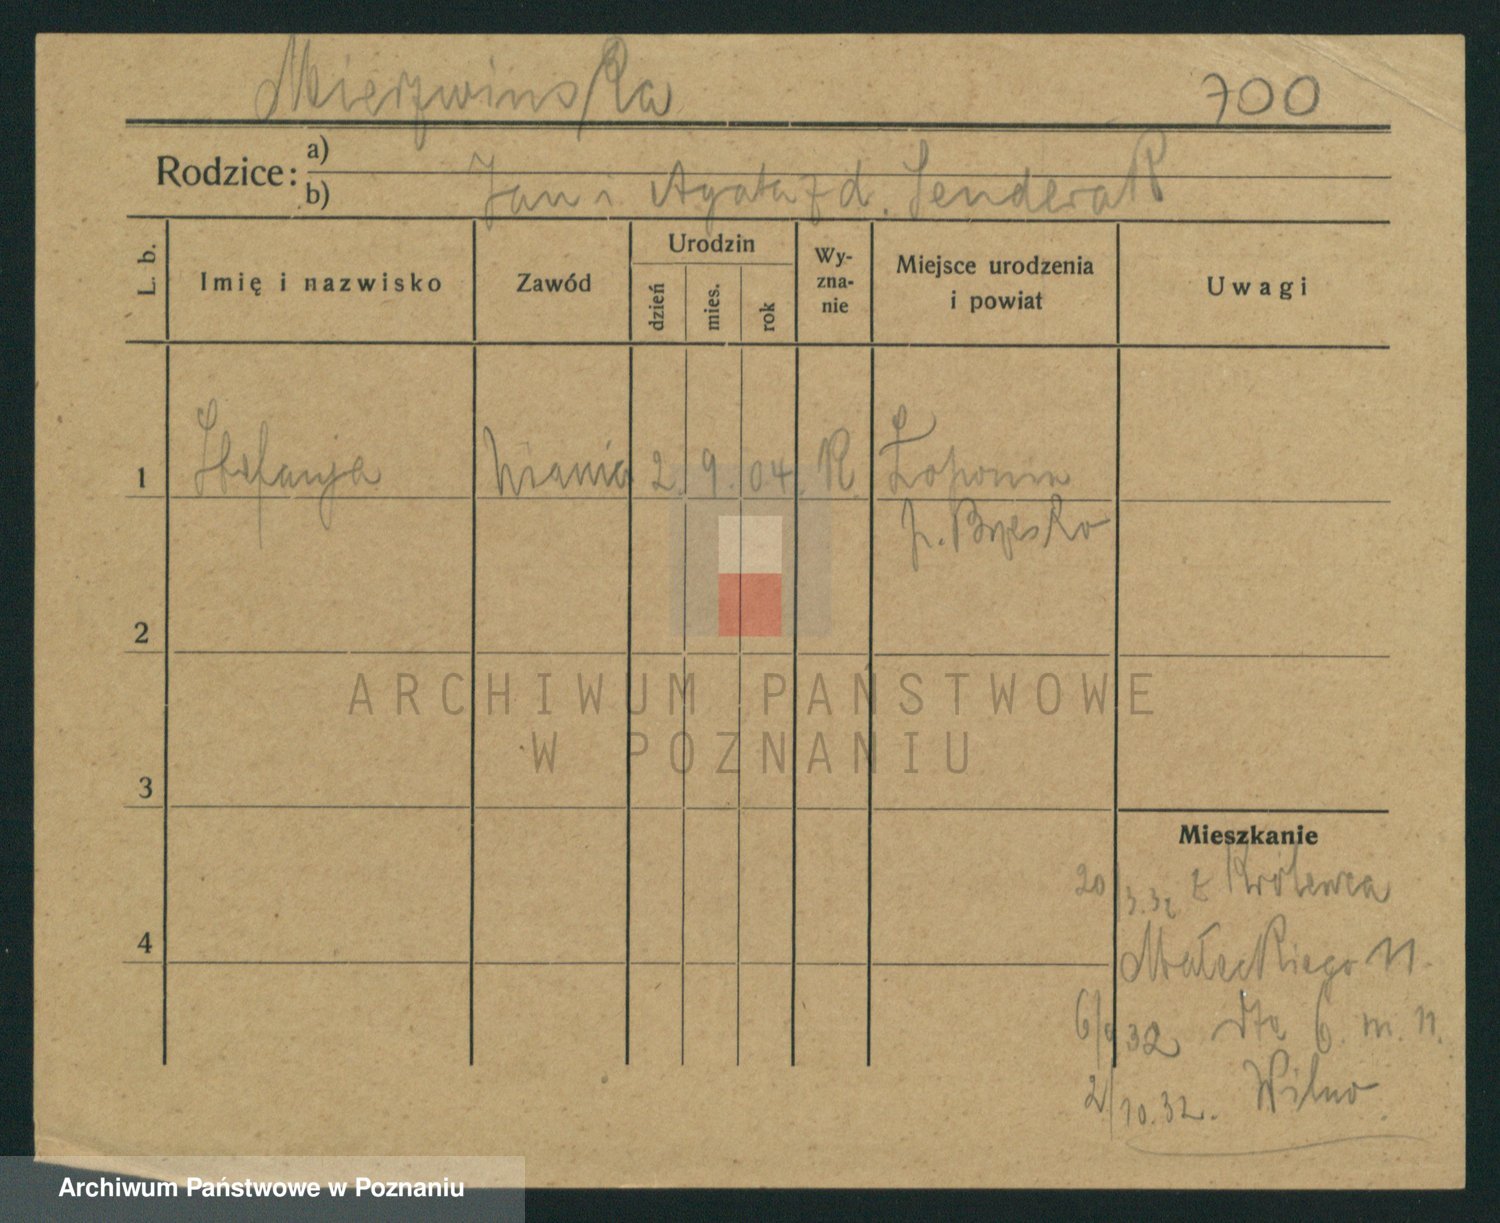 Mierzwinska 700
Rodzice: a)
b) Jan i Agata z d. Senderak
L. b. Imię i nazwisko Zawód Urodzin dzień mies. rok Wy-zna-nie Miejsce urodzenia i powiat Uwagi
1 Stefanja niania 2. 9. 04. R. Łoponia
p. Brzesko
2
ARCHIWUM PAŃSTWOWE
W POZNANIU
3
Mieszkanie
20/3.32 z Królewca
4
Małeckiego 11.
6/9 32 dto 6 m. 11.
2/10.32. Wilno
Archiwum Państwowe w Poznaniu